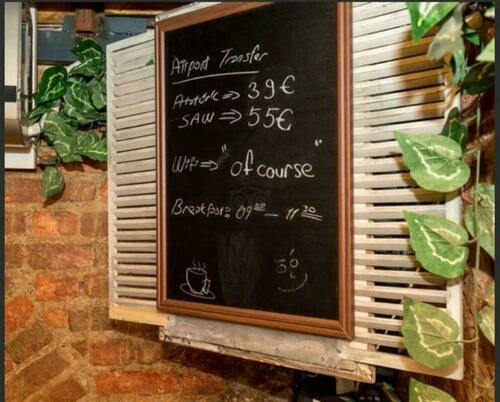 Airport Transfer
Atatürk => 39€
SAW => 55€
Wifi => "of course"
Breakfast: 09⁰⁰ — 11³⁰